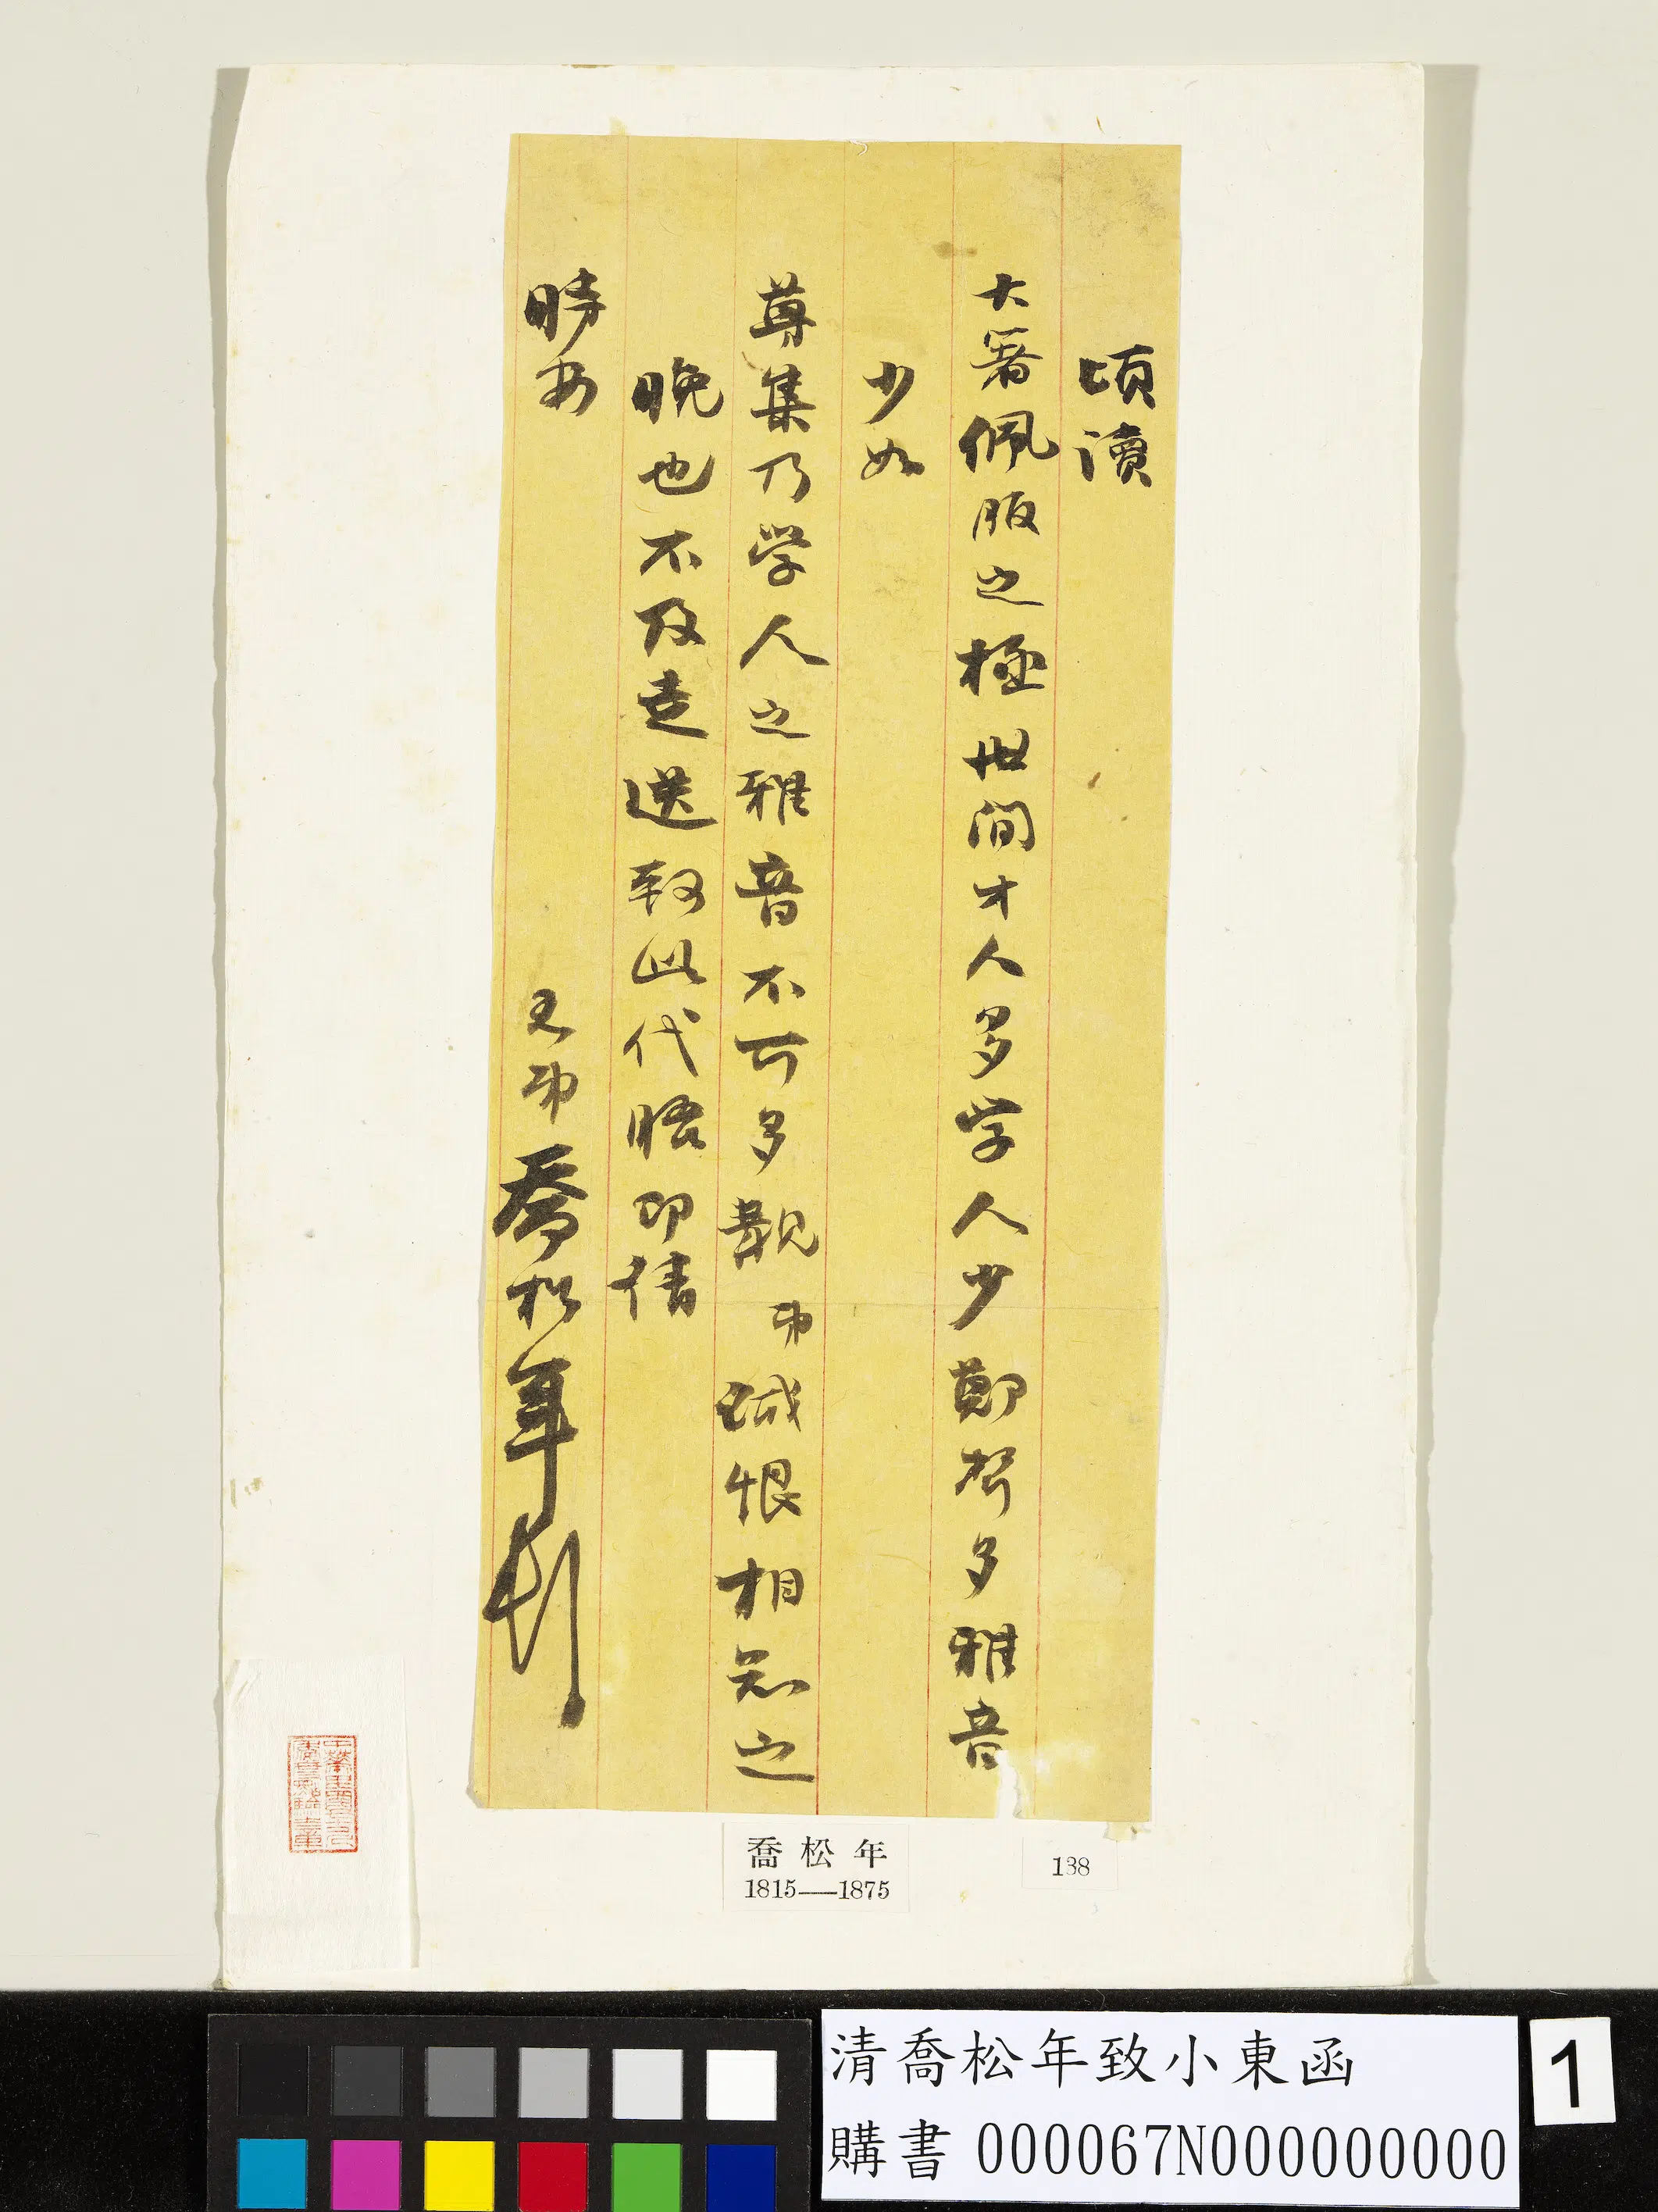 頃讀
大箸佩服之極世間才人多學人少鄭聲多雅音
少如
尊集乃学人之雅音不可多覯弟誠恨相知之
晚也不及走送敬此代晤即請
時安
愚弟喬松年
喬松年
1815—1875
138
清喬松年致小東函
購書 000067N000000000
1